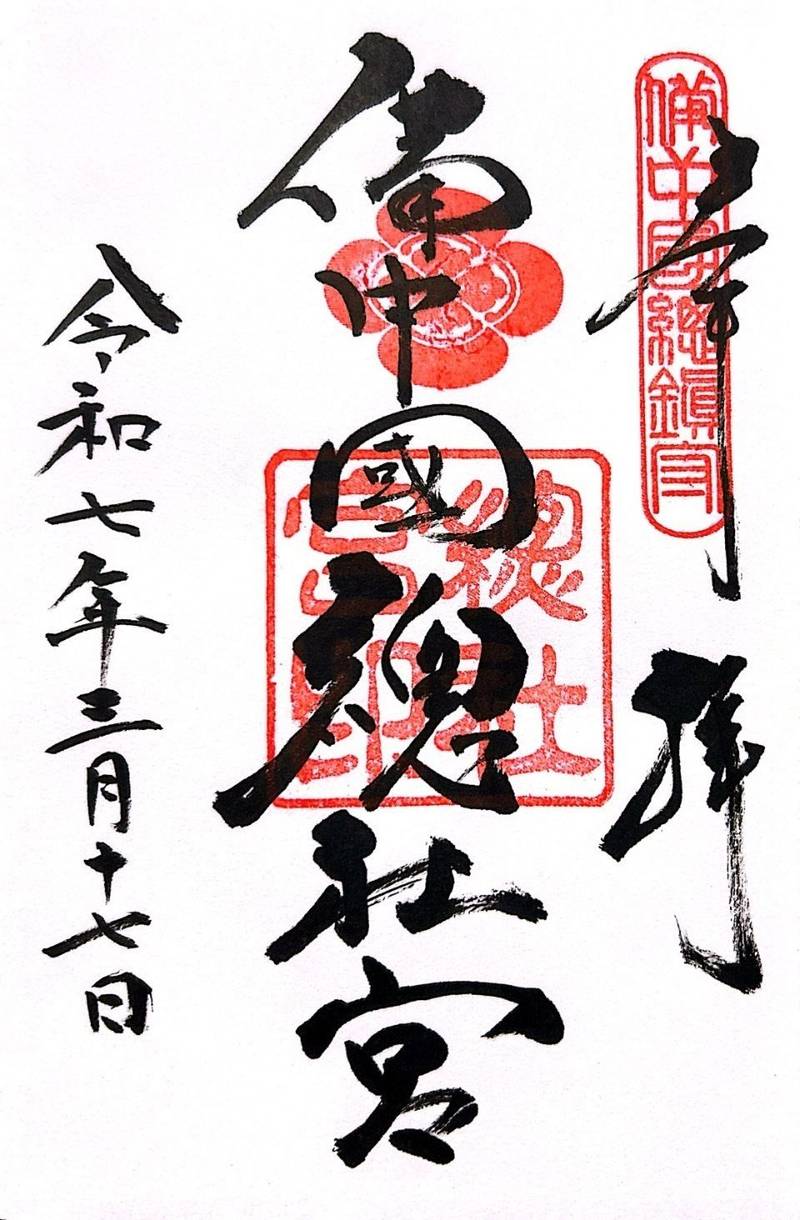 奉拝
備中國總鎮守
備中國總社宮
總社
宮印
令和七年三月十七日